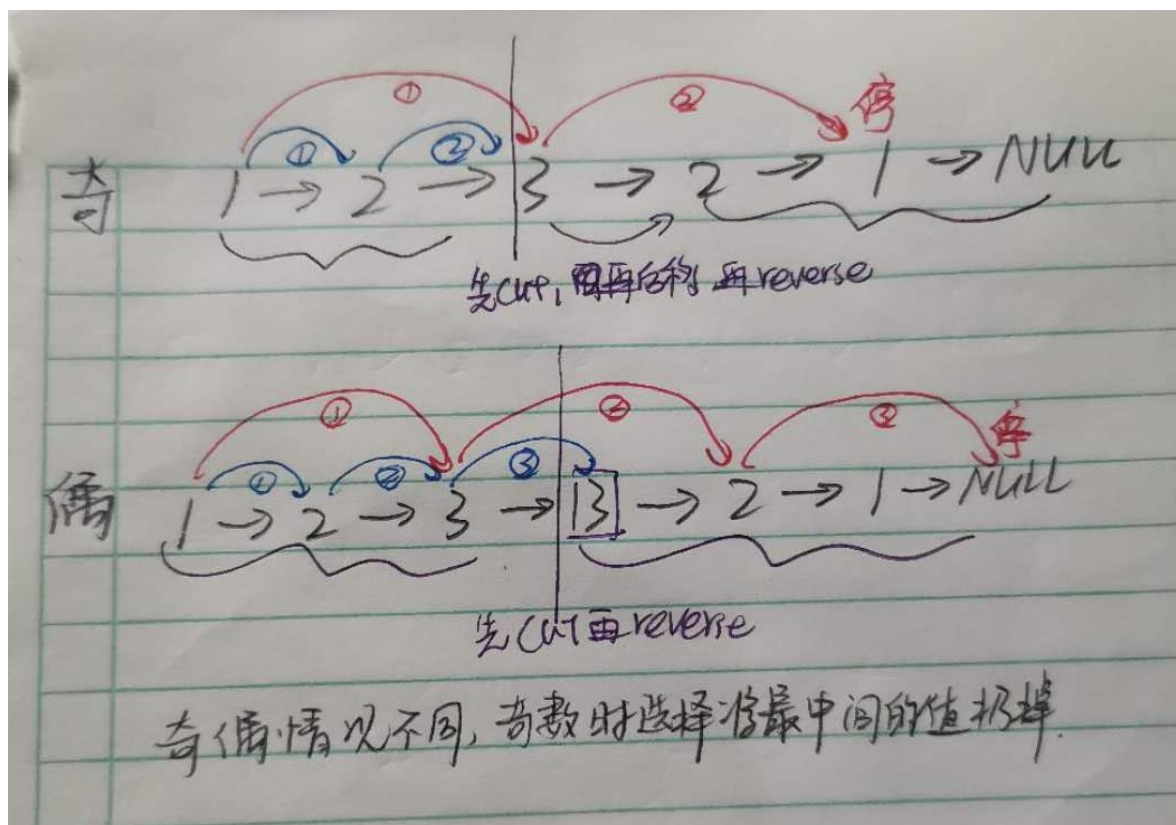 ① ② 停
① ②
奇 1 → 2 → 3 → 2 → 1 → NULL
先cut, 再后移 再reverse
① ② ③
① ② ③ 停
偶 1 → 2 → 3 → 3 → 2 → 1 → NULL
先cut再reverse
奇偶情况不同, 奇数时选择将最中间的值扔掉.